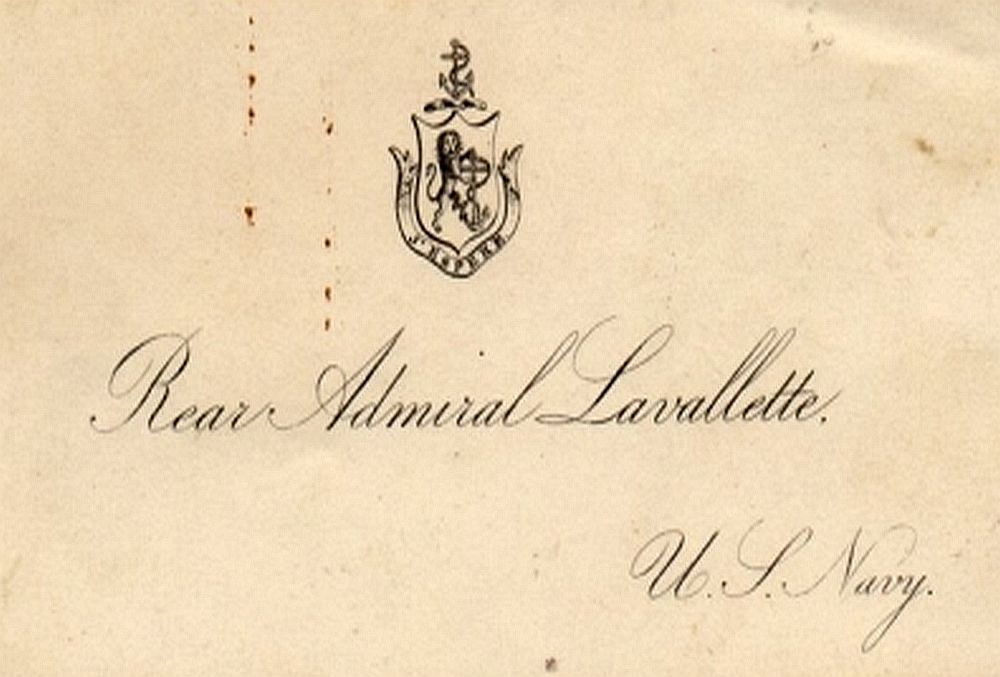 J'ESPERE
Rear Admiral Lavallette.
U. S. Navy.